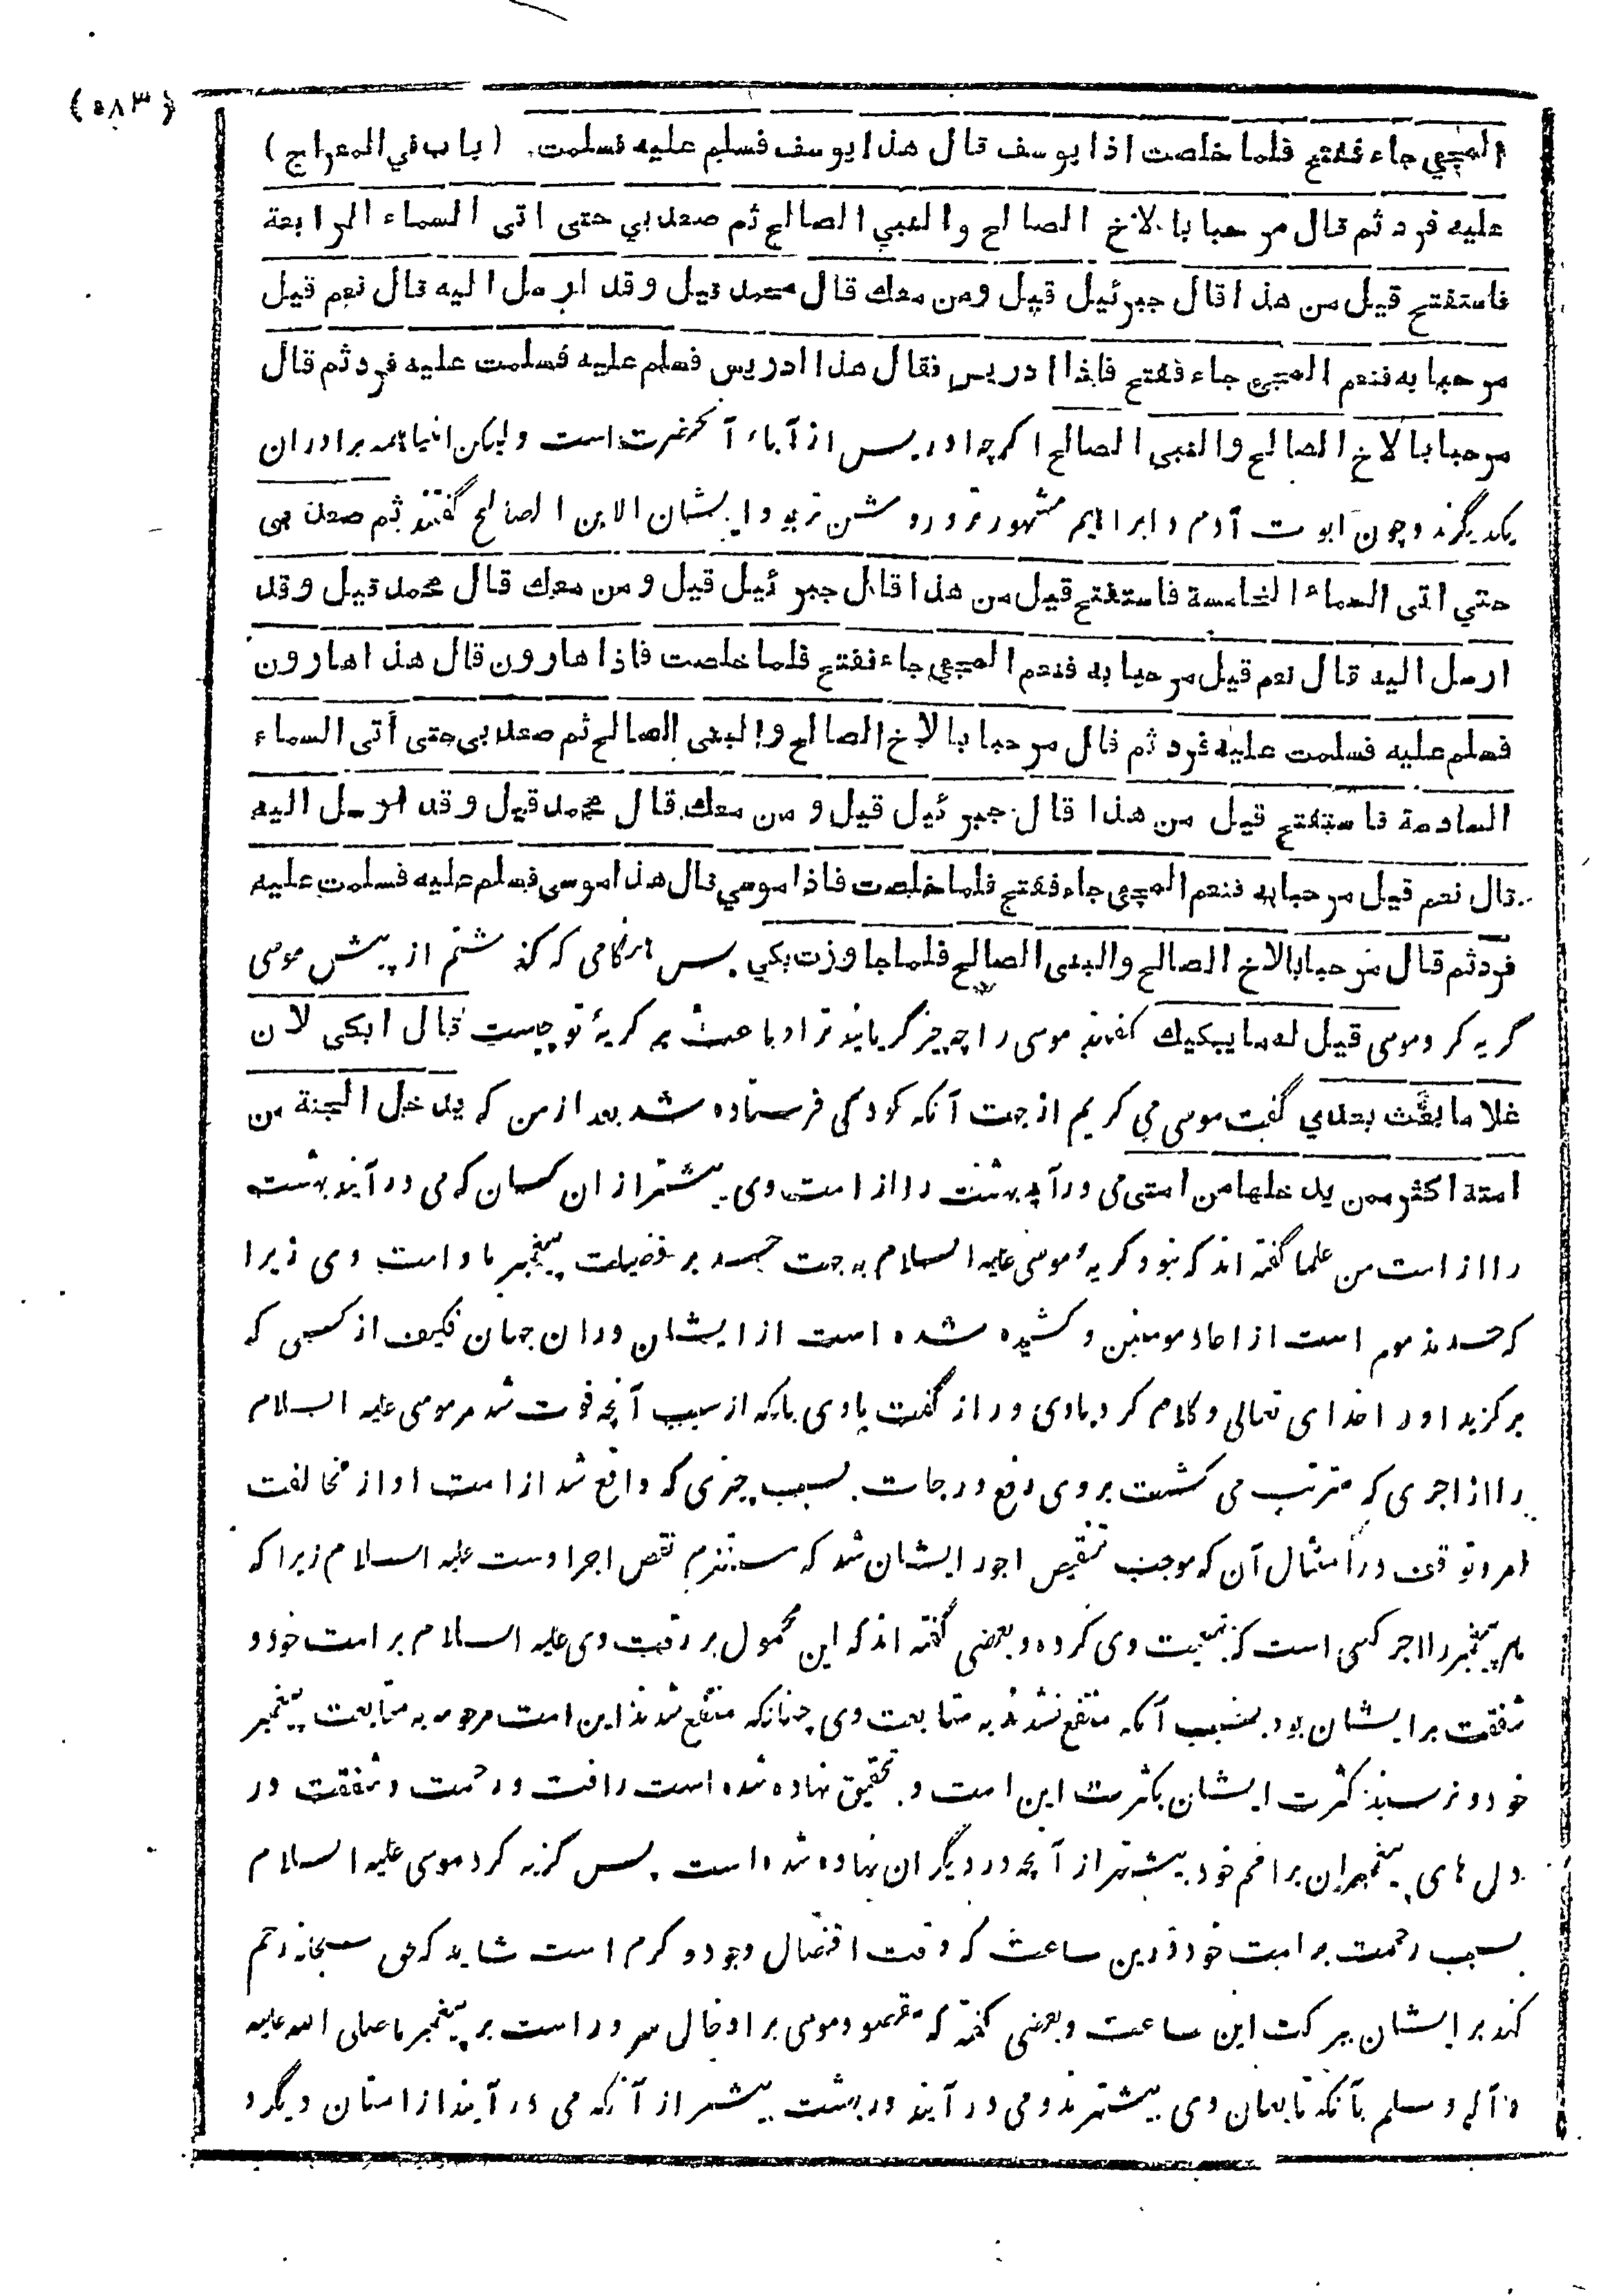 (٥٨٣)
المجي جاء ففتح فلما خلصت اذا يوسف قال هذا يوسف فسلم عليه فسلمت (باب في المعراج)
عليه فرد ثم قال مرحبا بالاخ الصالح والنبي الصالح ثم صعد بي حتى اتى السماء الرابعة
فاستفتح قيل من هذا قال جبرئيل قيل ومن معك قال محمد قيل وقد ارسل اليه قال نعم قيل
مرحبا به فنعم المجي جاء ففتح فاذا ادريس فقال هذا ادريس فسلم عليه فسلمت عليه فرد ثم قال
مرحبا بالاخ الصالح والنبي الصالح اگرچه ادریس از آباء آنحضرت است ولیکن انبیا همه برادران
یکدیگرند و چون ابوت آدم و ابراهیم مشهورتر و روشن تر بود ایشان الابن الصالح گفتند ثم صعد بي
حتي اتى السماء الخامسة فاستفتح قيل من هذا قال جبرئيل قيل ومن معك قال محمد قيل وقد
ارسل اليه قال نعم قيل مرحبا به فنعم المجي جاء ففتح فلما خلصت فاذا هارون قال هذا هارون
فسلم عليه فسلمت عليه فرد ثم قال مرحبا بالاخ الصالح والنبي الصالح ثم صعد بي حتى أتى السماء
السادسة فاستفتح قيل من هذا قال جبرئيل قيل ومن معك قال محمد قيل وقد ارسل اليه
قال نعم قيل مرحبا به فنعم المجي جاء ففتح فلما خلصت فاذا موسي قال هذا موسى فسلم عليه فسلمت عليه
فرد ثم قال مرحبا بالاخ الصالح والنبي الصالح فلما جاوزت بكي پس هنگامی که گذشتم از پیش موسی
گریه کرد موسی قيل له ما يبكيك گفتند موسی را چه چیز گریانید ترا و باعث بر گریهٔ تو چیست قال ابكى لان
غلاما بعث بعدي گفت موسی می گریم از جهت آنکه کودکی فرستاده شد بعد از من که يدخل الجنة من
امته اكثر ممن يدخلها من امتى می درآید بهشت را از امت وی بیشتر از ان کسان که می درآیند بهشت
را از امت من علما گفته اند که نبود گریهٔ موسی علیه السلام به جهت حسد بر فضیلت پیغمبر ما و امت وی زیرا
که حسد مذموم است از احاد مومنین و کشیده شده است از ایشان در ان جهان فکیف از کسی که
برگزید او را خدای تعالی و کلام کرد باوی و راز گفت باوی بلکه از سبب آنچه فوت شد مر موسی علیه السلام
را از اجری که مترتب می گشت بروی رفع درجات بسبب چیزی که واقع شد از امت او از مخالفت
امر و توقف در امثال آن که موجب تنقیص اجور ایشان شد که مستلزم نقص اجر اوست علیه السلام زیرا که
هر پیغمبر را اجر کسی است که تبعیت وی کرده و بعضی گفته اند که این محمول بر رقت وی علیه السلام بر امت خود و
شفقت بر ایشان بود بسبب آنکه منتفع نشدند به متابعت وی چنانکه منتفع شدند این امت مرحومه به متابعت پیغمبر
خود و نرسید کثرت ایشان بکثرت این امت و بتحقیق نهاده شده است رافت و رحمت و شفقت در
دل های پیغمبران بر امم خود بیشتر از آنچه در دیگران نهاده شده است پس گریه کرد موسی علیه السلام
بسبب رحمت بر امت خود درین ساعت که وقت افضال وجود و کرم است شاید که حق سبحانه رحم
کند بر ایشان ببرکت این ساعت و بعضی گفته که مقصود موسی برا دخال سرور است بر پیغمبر ما صلی الله علیه
و آله و سلم بآنکه تابعان وی بیشترند و می درآیند در بهشت بیشتر از آنکه می درآیند از امتان دیگر و